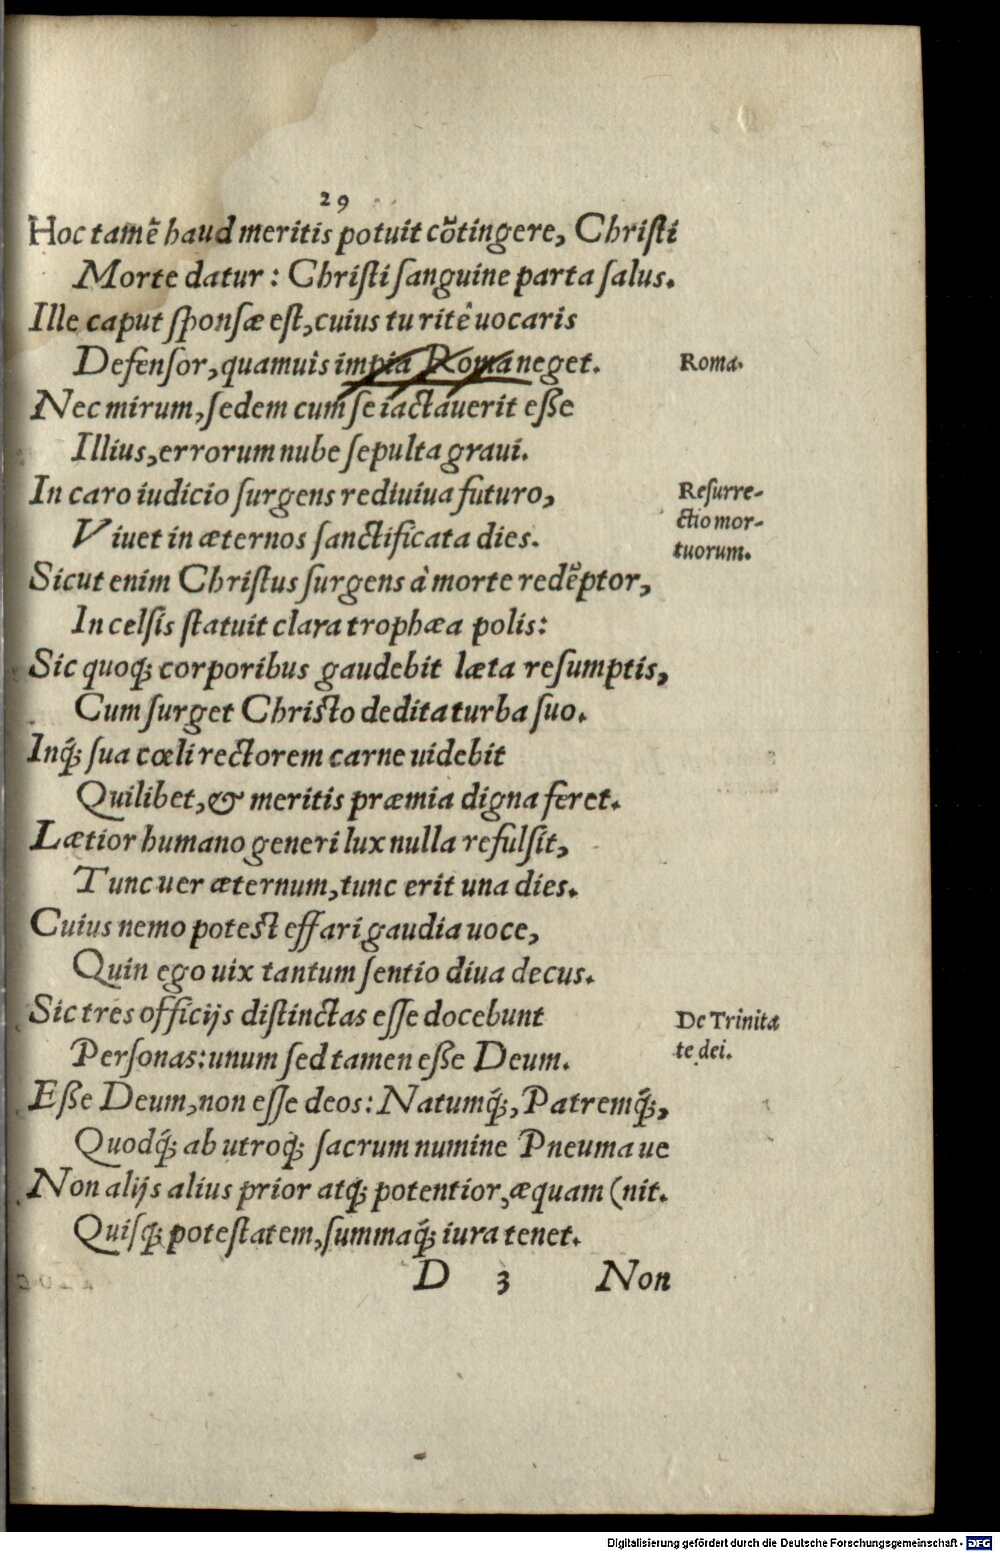 29
Hoc tamē haud meritis potuit cōtingere, Christi
Morte datur: Christi sanguine parta salus.
Ille caput sponsæ est, cuius tu ritè uocaris
Defensor, quamuis impia Roma neget.
Roma.
Nec mirum, sedem cum se iactauerit eße
Illius, errorum nube sepulta graui.
In caro iudicio surgens rediuiua futuro,
Resurre-
ctio mor-
tuorum.
Viuet in æternos sanctificata dies.
Sicut enim Christus surgens à morte redēptor,
In celsis statuit clara trophæa polis:
Sic quoq; corporibus gaudebit læta resumptis,
Cum surget Christo dedita turba suo.
Inq́; sua cœli rectorem carne uidebit
Quilibet, & meritis præmia digna feret.
Lætior humano generi lux nulla refulsit,
Tunc uer æternum, tunc erit una dies.
Cuius nemo potest effari gaudia uoce,
Quin ego uix tantum sentio diua decus.
Sic tres officijs distinctas esse docebunt
De Trinita
te dei.
Personas: unum sed tamen eße Deum.
Eße Deum, non esse deos: Natumq́;, Patremq́;,
Quodq́; ab utroq; sacrum numine Pneuma ue
Non alijs alius prior atq; potentior, æquam (nit.
Quisq; potestatem, summaq́; iura tenet.
D 3 Non
Digitalisierung gefördert durch die Deutsche Forschungsgemeinschaft - DFG